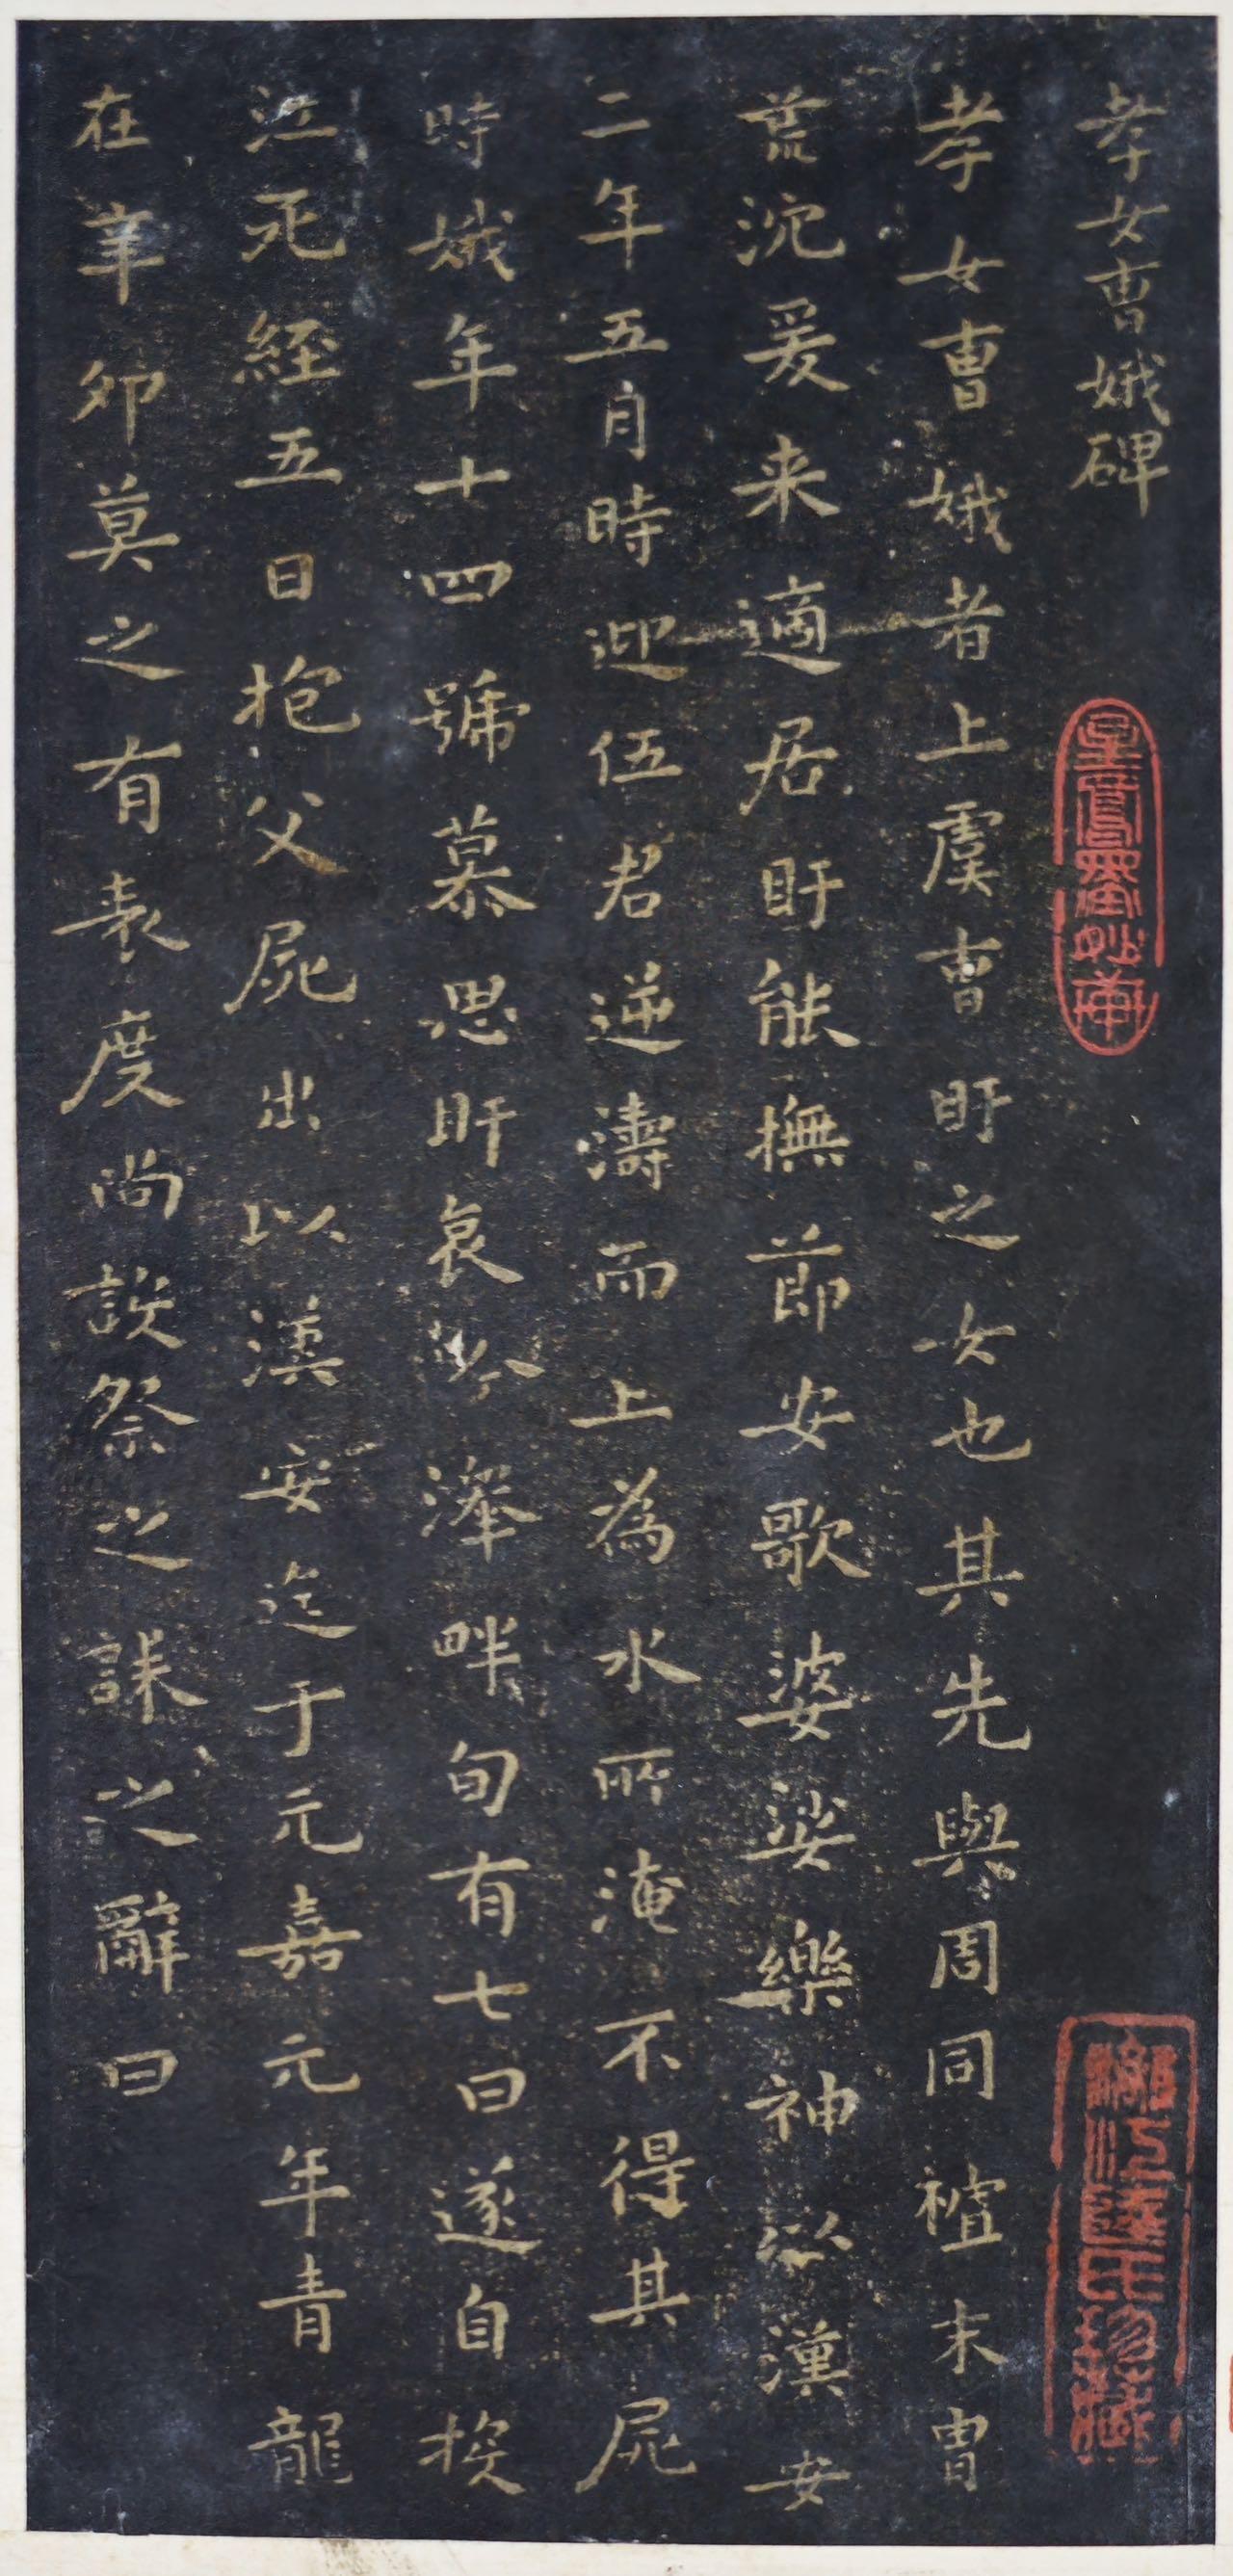 孝女曹娥碑
孝女曹娥者上虞曹盱之女也其先與周同祖末胄
荒沉爰来適居盱能撫節安歌婆娑樂神以漢安
二年五月時迎伍君逆濤而上為水所淹不得其屍
時娥年十四號慕思盱哀吟澤畔旬有七日遂自投
江死經五日抱父屍出以漢安迄于元嘉元年青龍
在辛卯莫之有表度尚設祭之誄之辭曰
氏珍藏